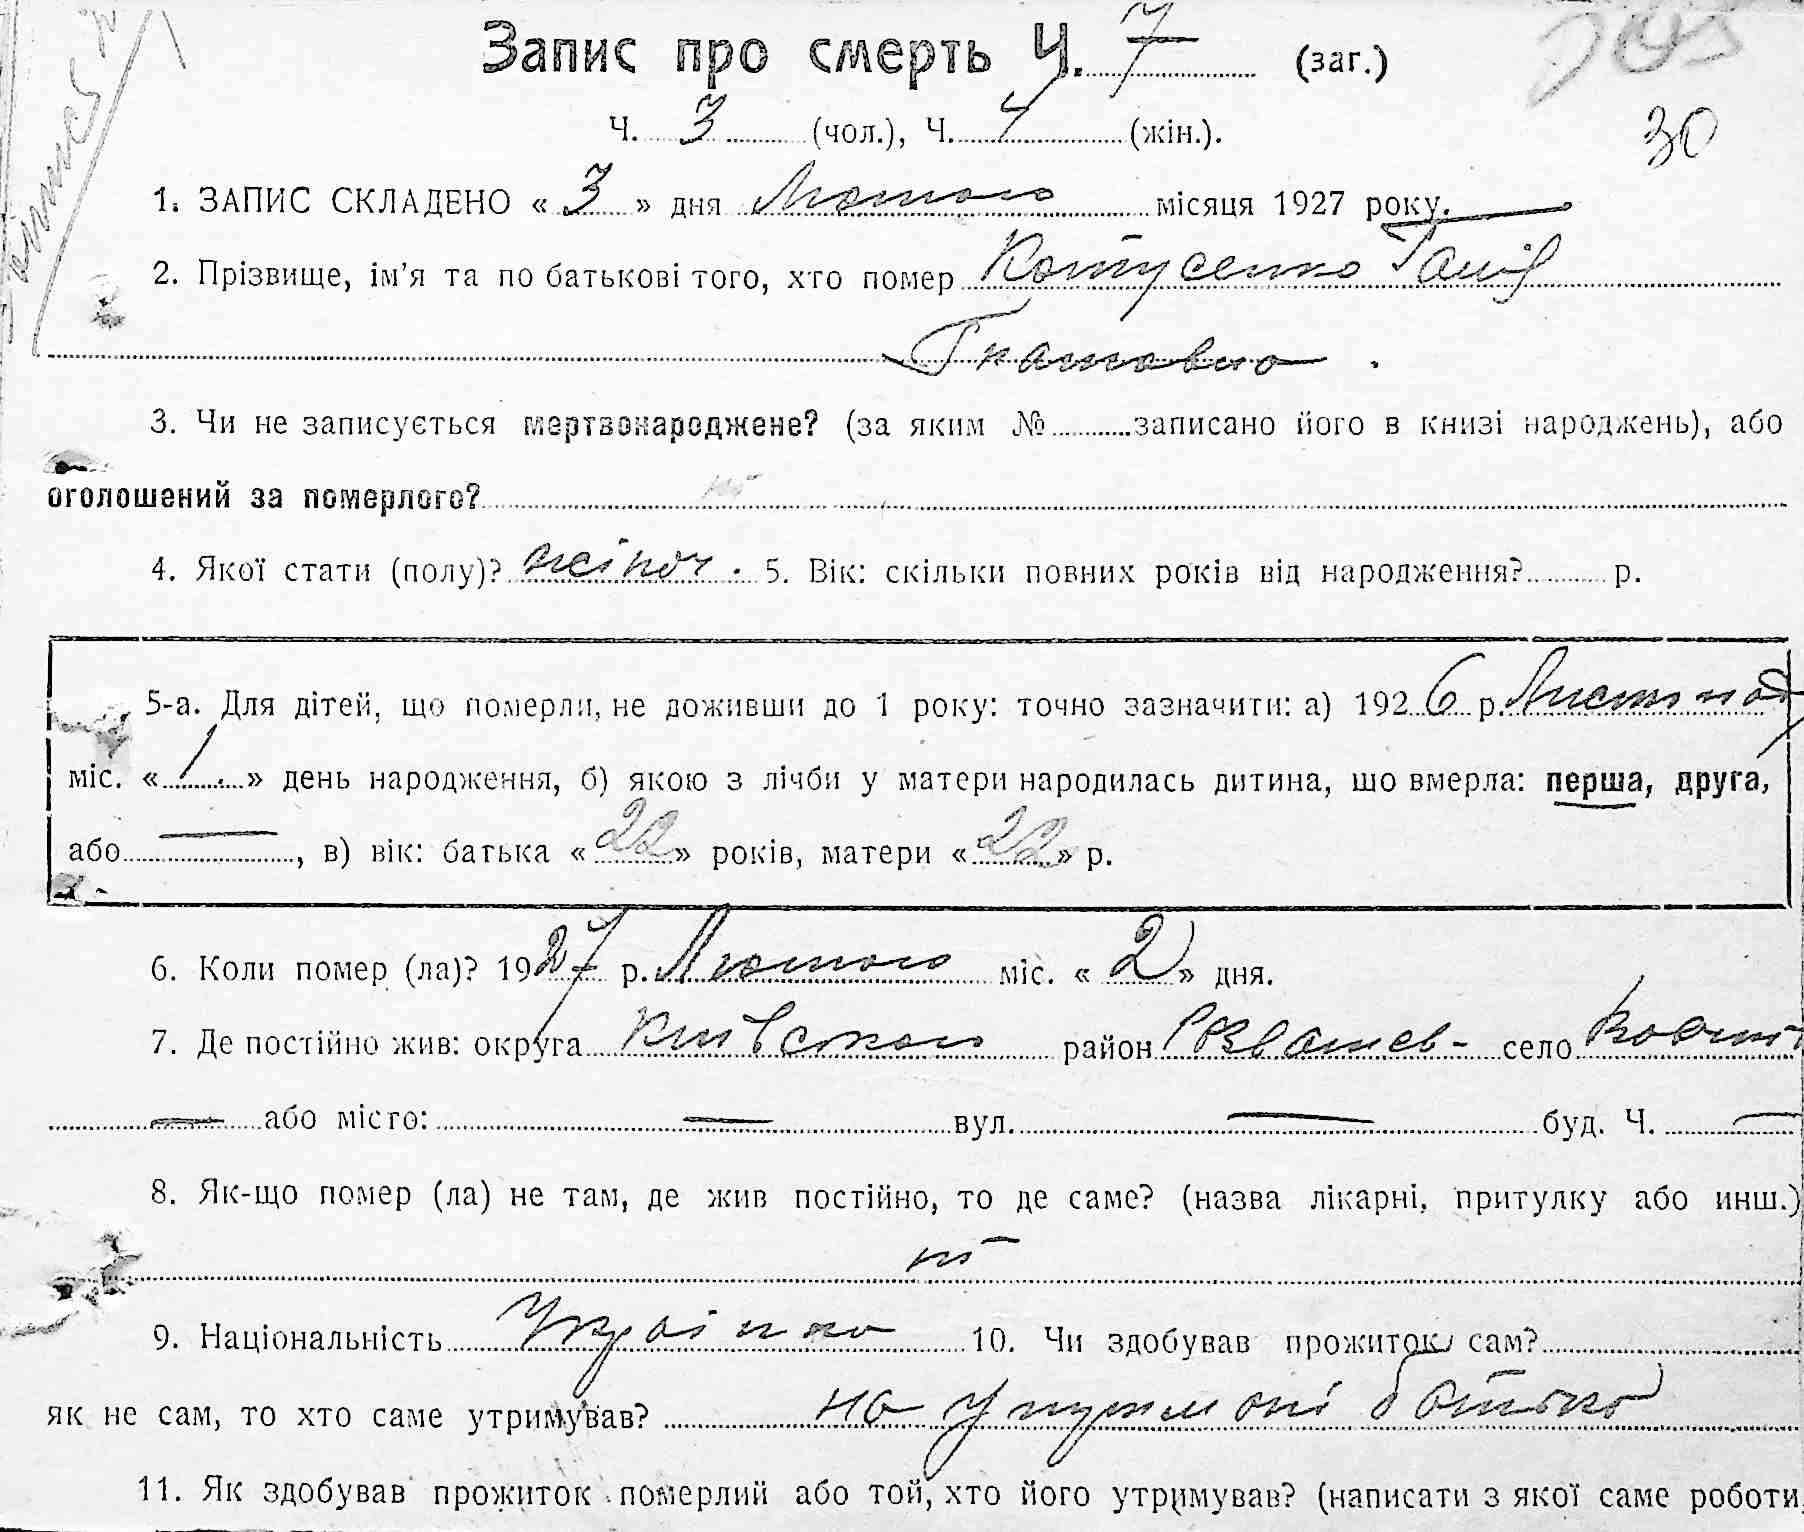 Запис про смерть Ч. 7 (заг.)
30
Ч. 3 (чол.), Ч. 4 (жін.).
1. ЗАПИС СКЛАДЕНО « 3 » дня Лютого місяця 1927 року.
2. Прізвище, ім’я та по батькові того, хто помер Котусенко Ганя
Гнатовна.
3. Чи не записується мертвонароджене? (за яким № записано його в книзі народжень), або
оголошений за померлого? ні
4. Якої стати (полу)? жіноч. 5. Вік: скільки повних років від народження? р.
5-а. Для дітей, що померли, не доживши до 1 року: точно зазначити: а) 1926 р. Листопад
міс. « 1. » день народження, б) якою з лічби у матери народилась дитина, що вмерла: перша, друга,
або —, в) вік: батька « 22 » років, матери « 22 » р.
6. Коли помер (ла)? 1927 р. Лютого міс. « 2 » дня.
7. Де постійно жив: округа Київського район Розважев- село
— або місто: — вул. — буд. Ч. —
8. Як-що помер (ла) не там, де жив постійно, то де саме? (назва лікарні, притулку або инш.)
ні
9. Національність Українка 10. Чи здобував прожиток сам?
як не сам, то хто саме утримував? на утриманні батька
11. Як здобував прожиток померлий або той, хто його утримував? (написати з якої саме роботи,